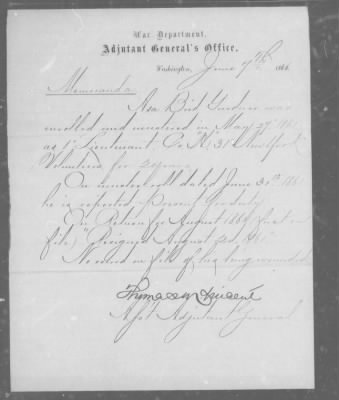 War Department,
Adjutant General's Office,
Washington, June 7th, 186
Memoranda
Asa Bird Gardner was
enrolled and mustered in May 27, 1861
as 1st Lieutenant Co "H" 31 New York
Volunteers for 2 years
On muster roll dated June 30th 1861
he is reported Present for duty
On Return for August 1861 (first on
file) "Resigned August 2d, 1861"
No record on file of his being wounded
Thomas M Vincent
Asst Adjutant General